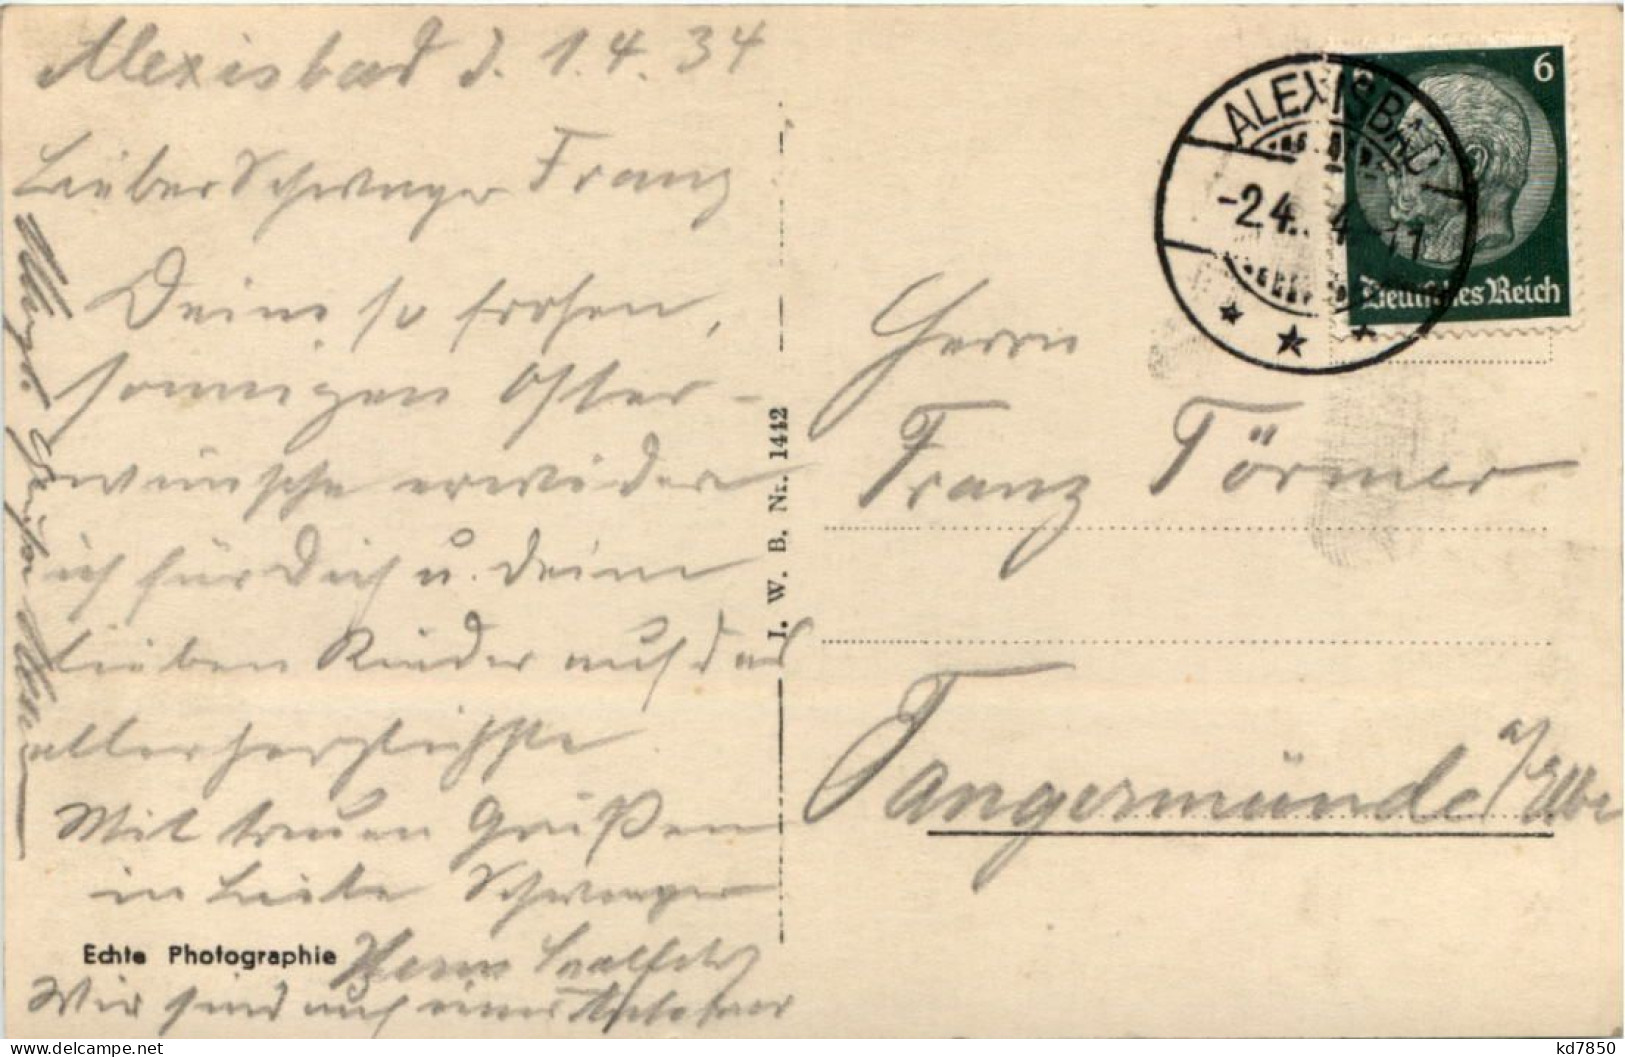 Alexisbad d. 1.4.34
Lieber Schwager Franz
Deine so frohen,
sonnigen Oster-
wünsche erwidere
ich für Dich u. Deine
lieben Kinder auf das
allerherzlichste.
Mit treuen Grüßen
in Liebe Schwager
Wir sind auf einer
Echte Photographie
J. W. B. Nr. 1442
ALEXISBAD
-2.4. 4-11
6
Deutsches Reich
Herrn
Franz Törmer
Tangermünde a/Elbe
delcampe.net
kd7850